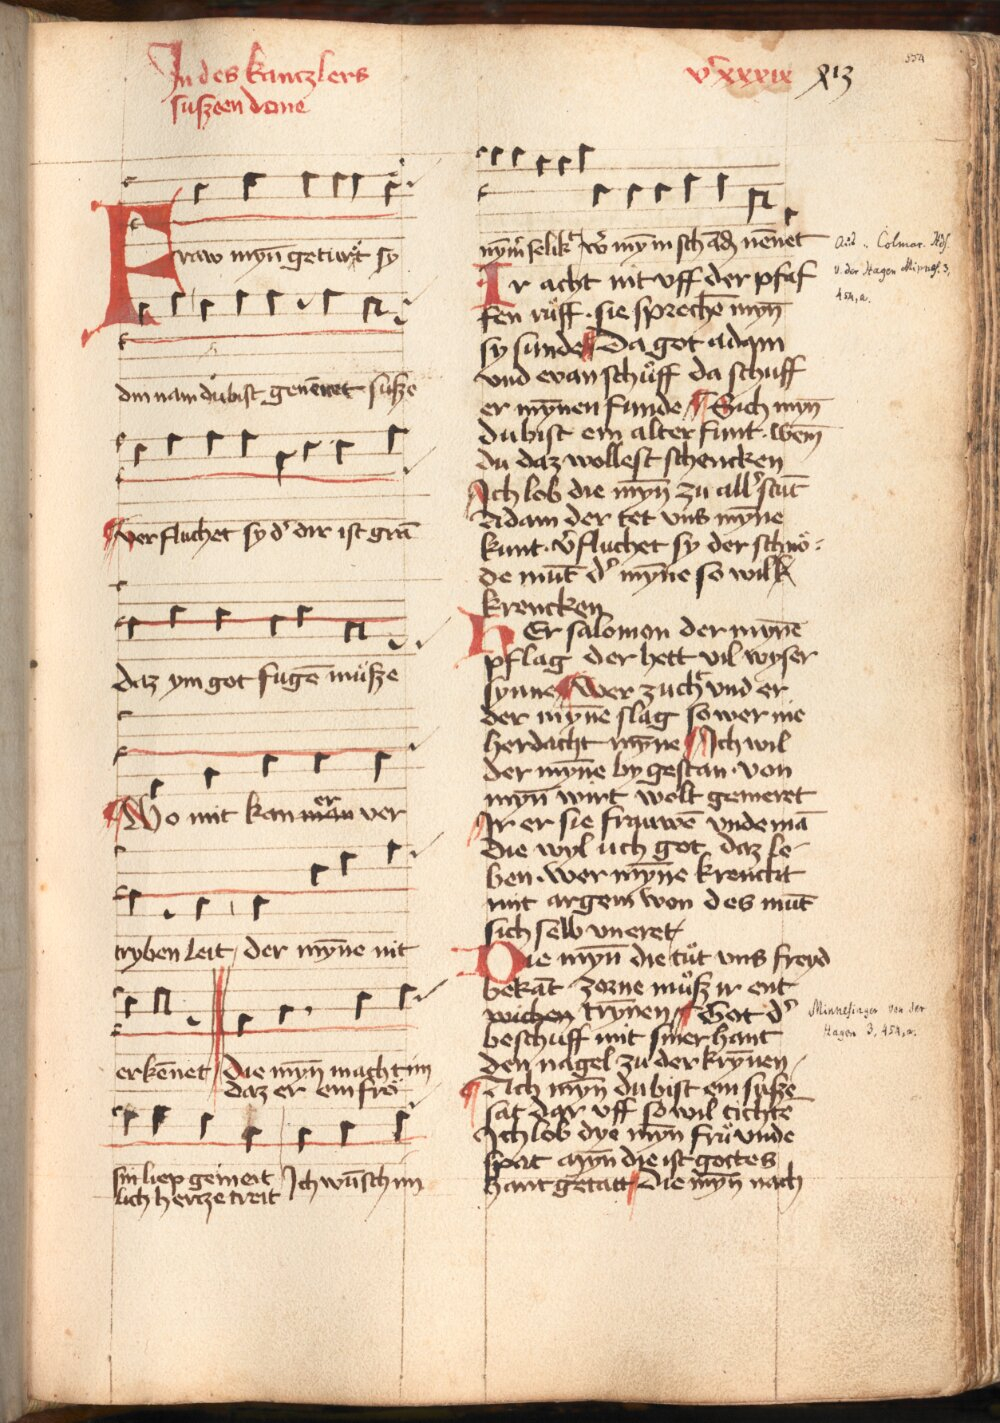 In des kantzlers
suszen done
vͨxxxix xij
554
Fraw myn̄ getiu̇rt sy
din nam du bist genēnet susze
verfluchet sy dʾ dir ist grā
daz ym got fugē müsze
Wo mit kan man er ver
tryben leit / der mȳne nit
erkēnet / die myn̄ macht im
daz er ein frö
sin liep gemeit Ich wūsch im
lich hertze treit
nȳmʾ selikͭ / wʾ myn̄ in schādē nēnet
Ir acht nit vff der pfaf
fen rüff · sie sprechē myn̄
sy sunde Da got adam
vnd evan schüff da schuff
er mȳnen funde Sich myn̄
du bist ein alter funt · wem̄
du daz wollest schencken
Ich lob die myn̄ zu allʾ stūt
Adam der tet vns mȳne
kunt · vʾfluchet sy der schnö
de mūt dʾ mȳne so wil
krencken
HEr salomon der mȳne
pflag der hett vil wyser
synne Wer zucht vnd er
der mȳne slag so wer nie
herdacht mȳne Ich wil
der mȳne by gestan · von
myn̄ wirt welt gemeret
Ir er sie frauwē vnde mā
die wyl uch got daz le
ben · wer mȳne krenckt
mit argem won des mūt
sich selb vneret
Die myn̄ die tüt vns freyd
bekāt zorne müsz ir ent
wichen trȳnen Got dʾ
beschuff mit siner hant
den nagel zu der krȳnen
Ach myn̄ du bist ein süsze
sat dar vff so wil tichtē
Ich lob dye myn̄ frü vnde
spat myn̄ die ist gottes
hant getatt die myn̄ nach
Colmar. Hds.
v. der Hagen Minnes. 3,
454, a.
Minnesinger von der
Hagen 3, 454, a.